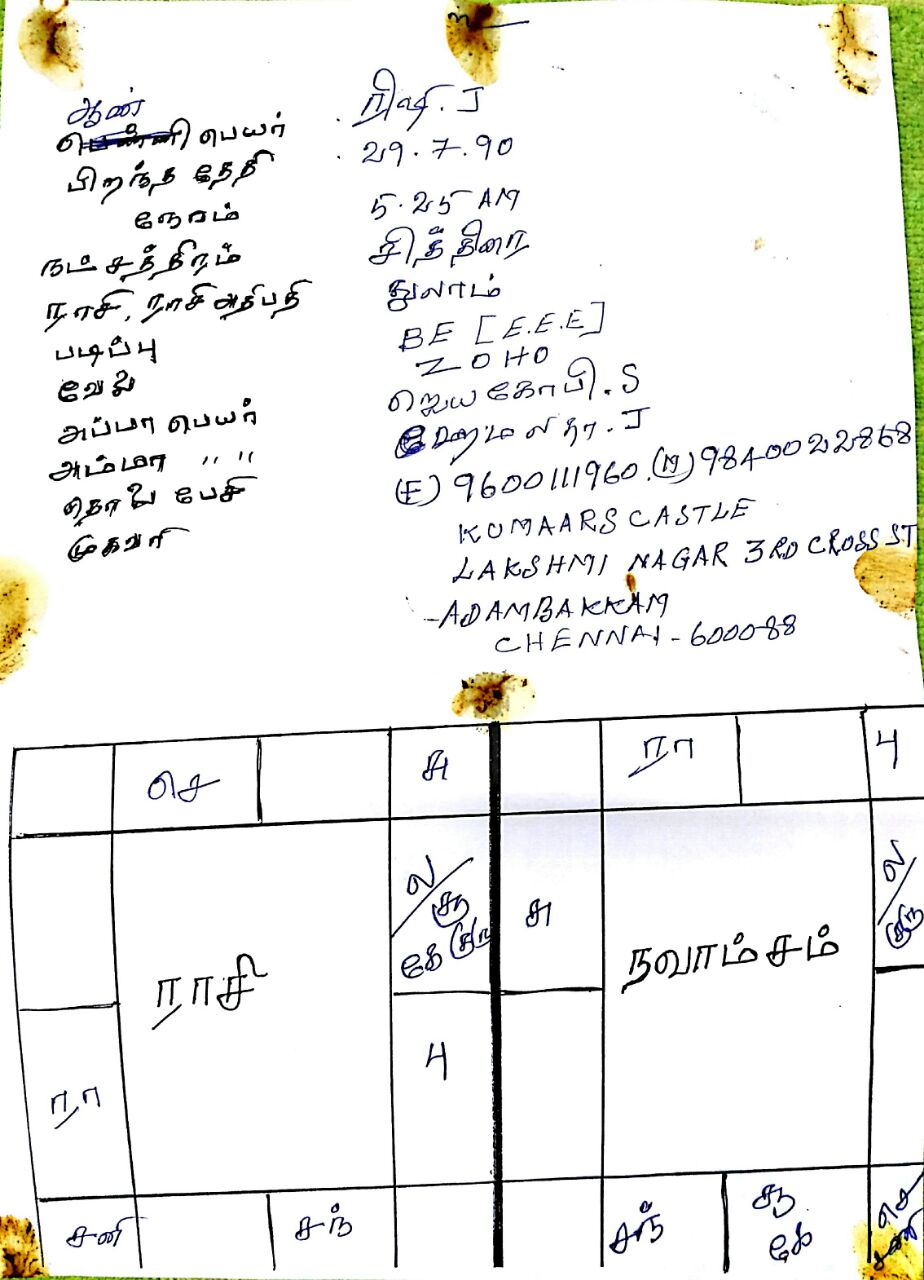 ஆண்
பெயர் ரிஷி. J
பிறந்த தேதி 29.7.90
நேரம் 5.25 AM
நட்சத்திரம் சித்திரை
ராசி, ராசி அதிபதி துலாம்
படிப்பு BE [E.E.E]
வேலை ZOHO
அப்பா பெயர் ஜெயகோபி. S
அம்மா " " ஹேமலதா. J
தொலை பேசி (F) 9600111960. (M) 9840022868
முகவரி KUMAARS CASTLE
LAKSHMI NAGAR 3RD CROSS ST
ADAMBAKKAM
CHENNAI - 600088
செ சு ரா பு
ல சூ கே குரு சு ல குரு
ராசி நவாம்சம்
பு
ரா
சனி சந் சந் சூ கே செ சனி